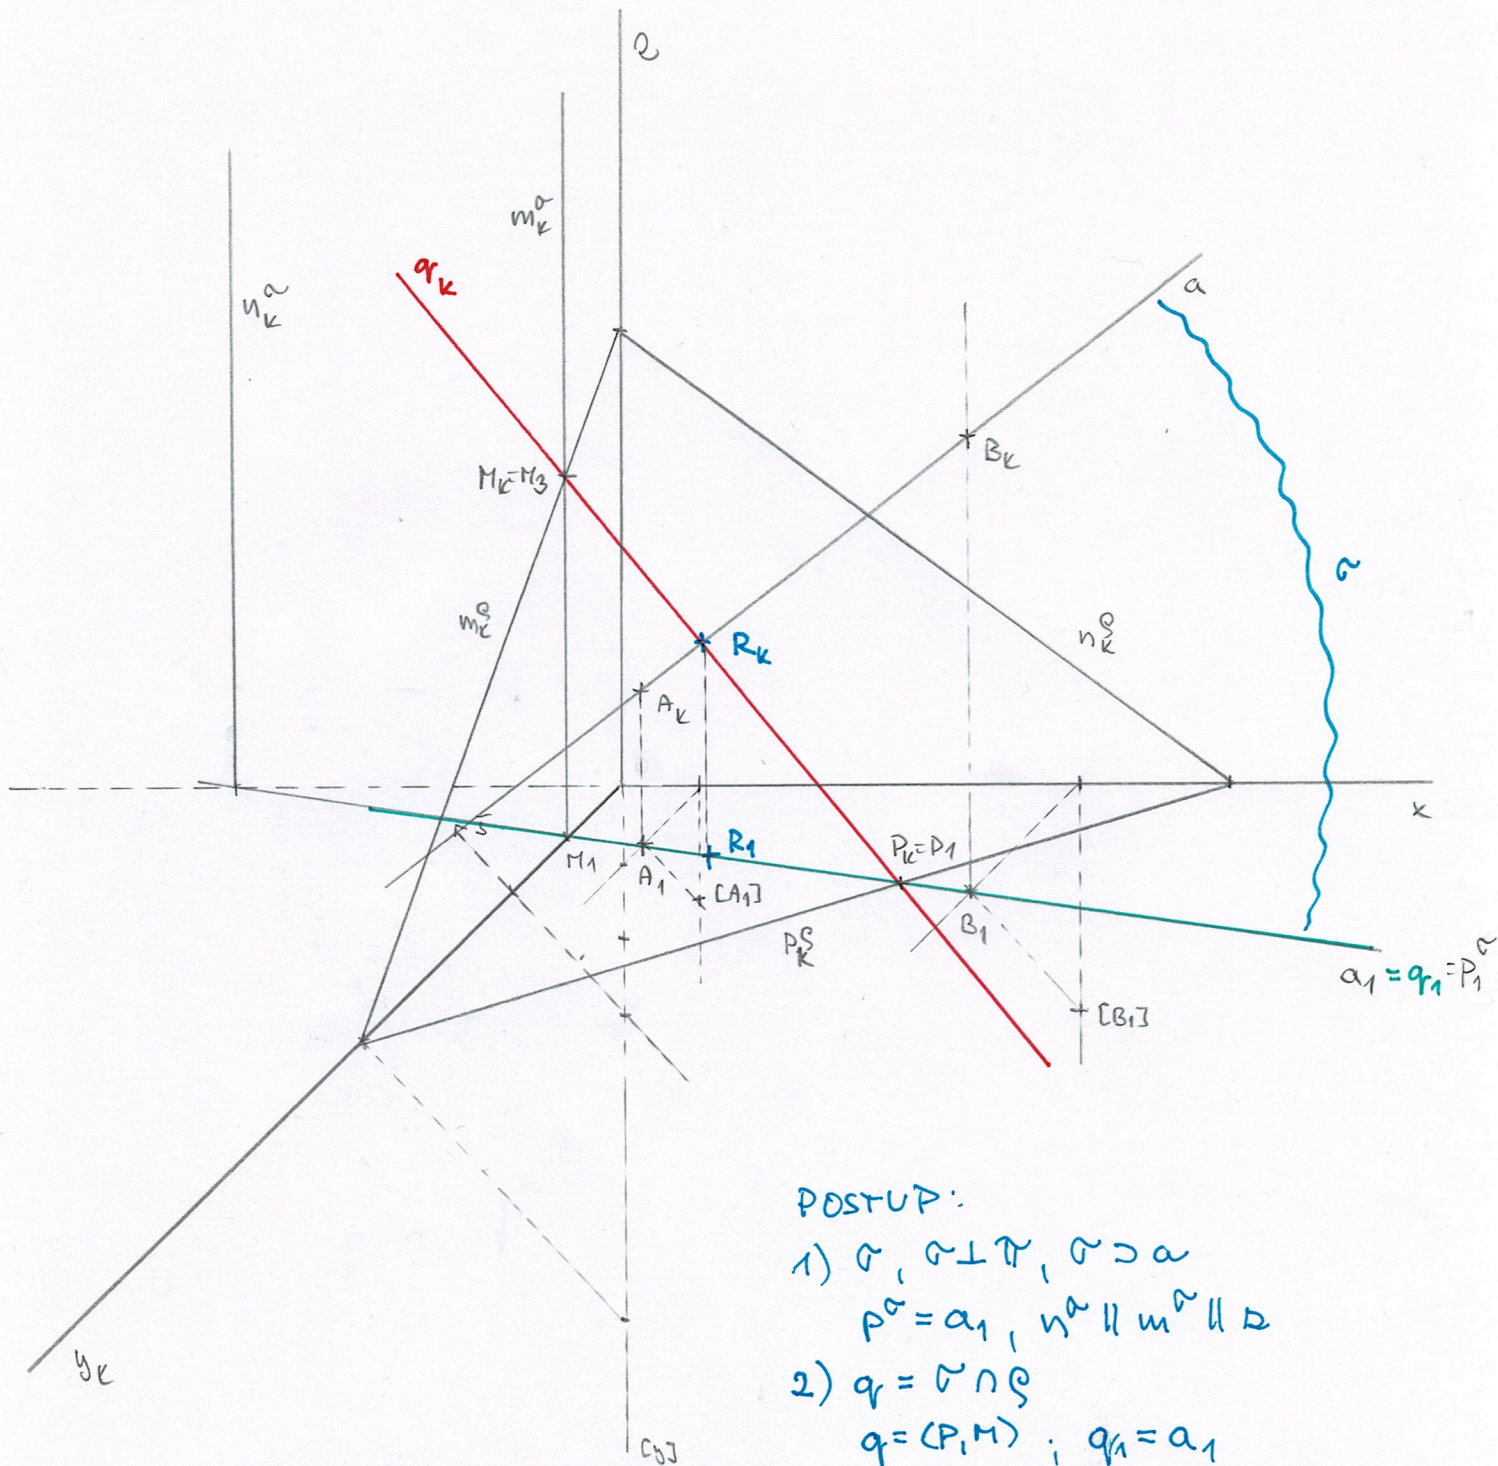 z
m_k^σ
q_k
n_k^σ
a
B_k
M_k=M_3
σ
m_k^ρ
R_k
n_k^ρ
A_k
x
R_1
P_k=P_1
M_1
A_1
[A_1]
B_1
p_k^ρ
a_1=q_1=p_1^σ
[B_1]
y_k
[y]
POSTUP:
1) σ, σ⊥π, σ⊃a
p^σ=a_1, n^σ ∥ m^σ ∥ z
2) q = σ∩ρ
q=(P,M) ; q_1=a_1